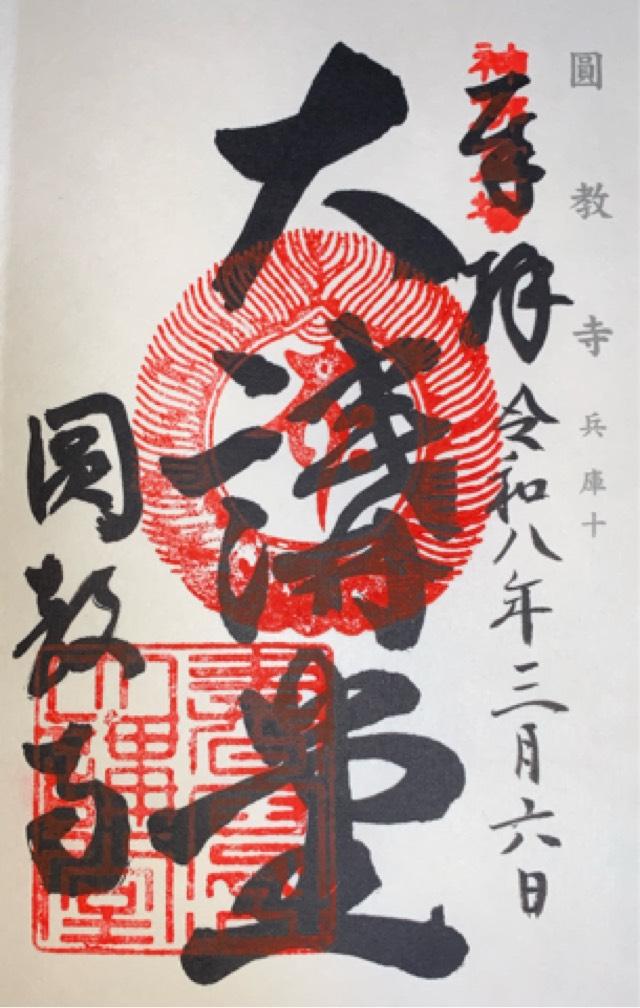 圓教寺 兵庫十
奉拝 令和八年三月六日
大講堂
圓教寺